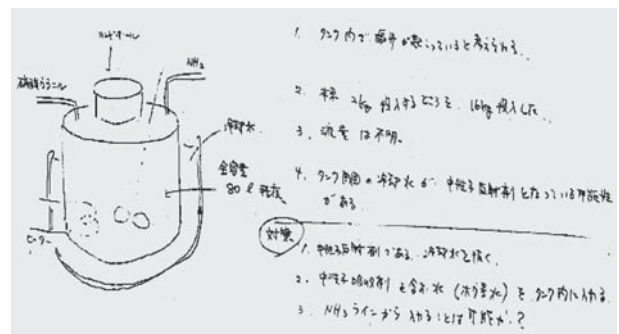 ハンドホール
NH₃
硝酸ウラニル
冷却水
全容量
80ℓ 程度
モーター
1. タンク内で臨界が起こっていると考えられる。
2. 本来 2kg 投入するところを、16kg 投入した。
3. 流量は不明。
4. タンク周囲の冷却水が、中性子反射剤となっている可能性
がある。
対策
1. 中性子反射剤である、冷却水を抜く。
2. 中性子吸収剤を含む水(ホウ素水)をタンク内に入れる。
3. NH₃ラインから入れることは可能か?